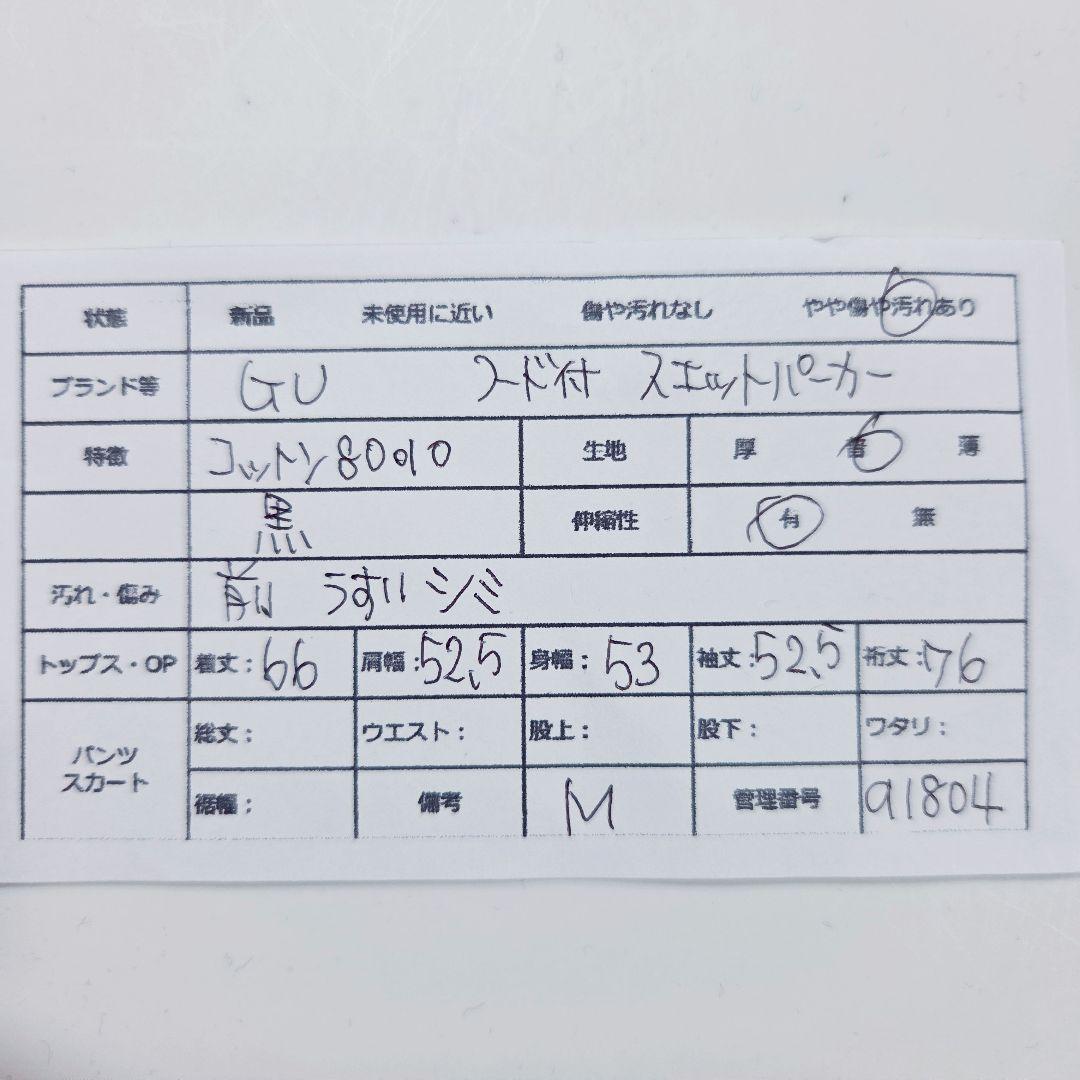 状態 新品 未使用に近い 傷や汚れなし やや傷や汚れあり
ブランド等 GU フード付 スエットパーカー
特徴 コットン80%0 生地 厚 普 薄
黒 伸縮性 有 無
汚れ・傷み 前 うすいシミ
トップス・OP 着丈:66 肩幅:52.5 身幅:53 袖丈:52.5 裄丈:76
パンツ スカート 総丈: ウエスト: 股上: 股下: ワタリ:
裾幅: 備考 M 管理番号 a1804